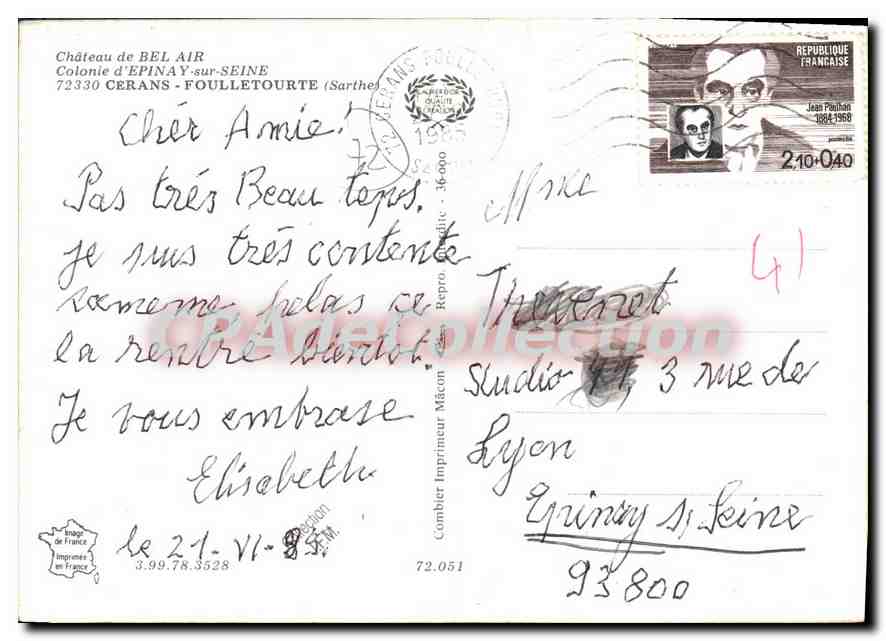 Château de BEL AIR
Colonie d'EPINAY-sur-SEINE
72330 CERANS - FOULLETOURTE (Sarthe)
Chér Amie!
Pas trés Beau temps.
je suis trés contente
helas ce
la rentré bientot.
Je vous embrase
Elisabeth
le 21-VI-85.
Image
de France
Imprimée
en France
3.99.78.3528
72.051
Combier Imprimeur Mâcon
Repro. interdite - 36-000
LABEL D'OR
QUALITÉ
CRÉATION
72 CERANS FOULLETOURTE
1985
72
RÉPUBLIQUE
FRANÇAISE
Jean Paulhan
1884-1968
postes
2,10+0,40
Mme
41
Thevenet
Studio 41, 3 rue de
Lyon
Epinay s/ Seine
93800
CPAdeCollection